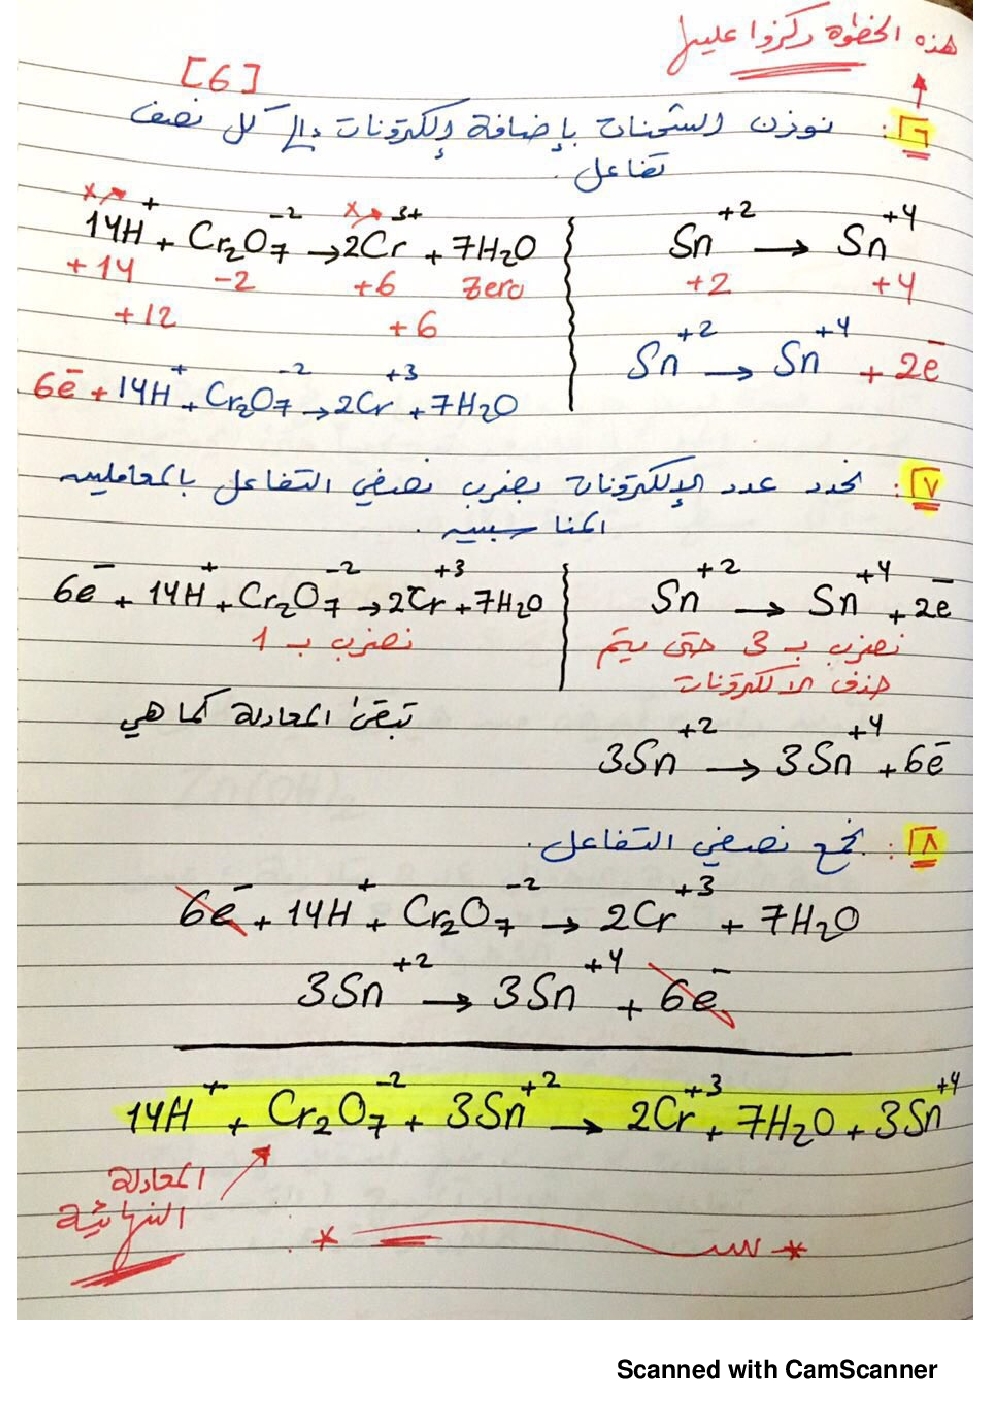 هذه الخطوة ركزوا عليها
[6]
٦: نوزن الشحنات بإضافة إلكترونات إلى كل نصف
تفاعل.
14H⁺ + Cr₂O₇⁻² → 2Cr³⁺ + 7H₂O
+14 -2 +6 Zero
+12 +6
6e⁻ + 14H⁺ + Cr₂O₇⁻² → 2Cr⁺³ + 7H₂O
Sn⁺² → Sn⁺⁴
+2 +4
Sn⁺² → Sn⁺⁴ + 2e⁻
٧: نحدد عدد الإلكترونات بضرب نصفي التفاعل بالمعاملين
المناسبين.
6e⁻ + 14H⁺ + Cr₂O₇⁻² → 2Cr⁺³ + 7H₂O
نضرب بـ 1
تبقى المعادلة كما هي
Sn⁺² → Sn⁺⁴ + 2e⁻
نضرب بـ 3 حتى يتم
حذف الالكترونات
3Sn⁺² → 3Sn⁺⁴ + 6e⁻
٨: نجمع نصفي التفاعل.
6e⁻ + 14H⁺ + Cr₂O₇⁻² → 2Cr⁺³ + 7H₂O
3Sn⁺² → 3Sn⁺⁴ + 6e⁻
14H⁺ + Cr₂O₇⁻² + 3Sn⁺² → 2Cr⁺³ + 7H₂O + 3Sn⁺⁴
المعادلة
النهائية
Scanned with CamScanner